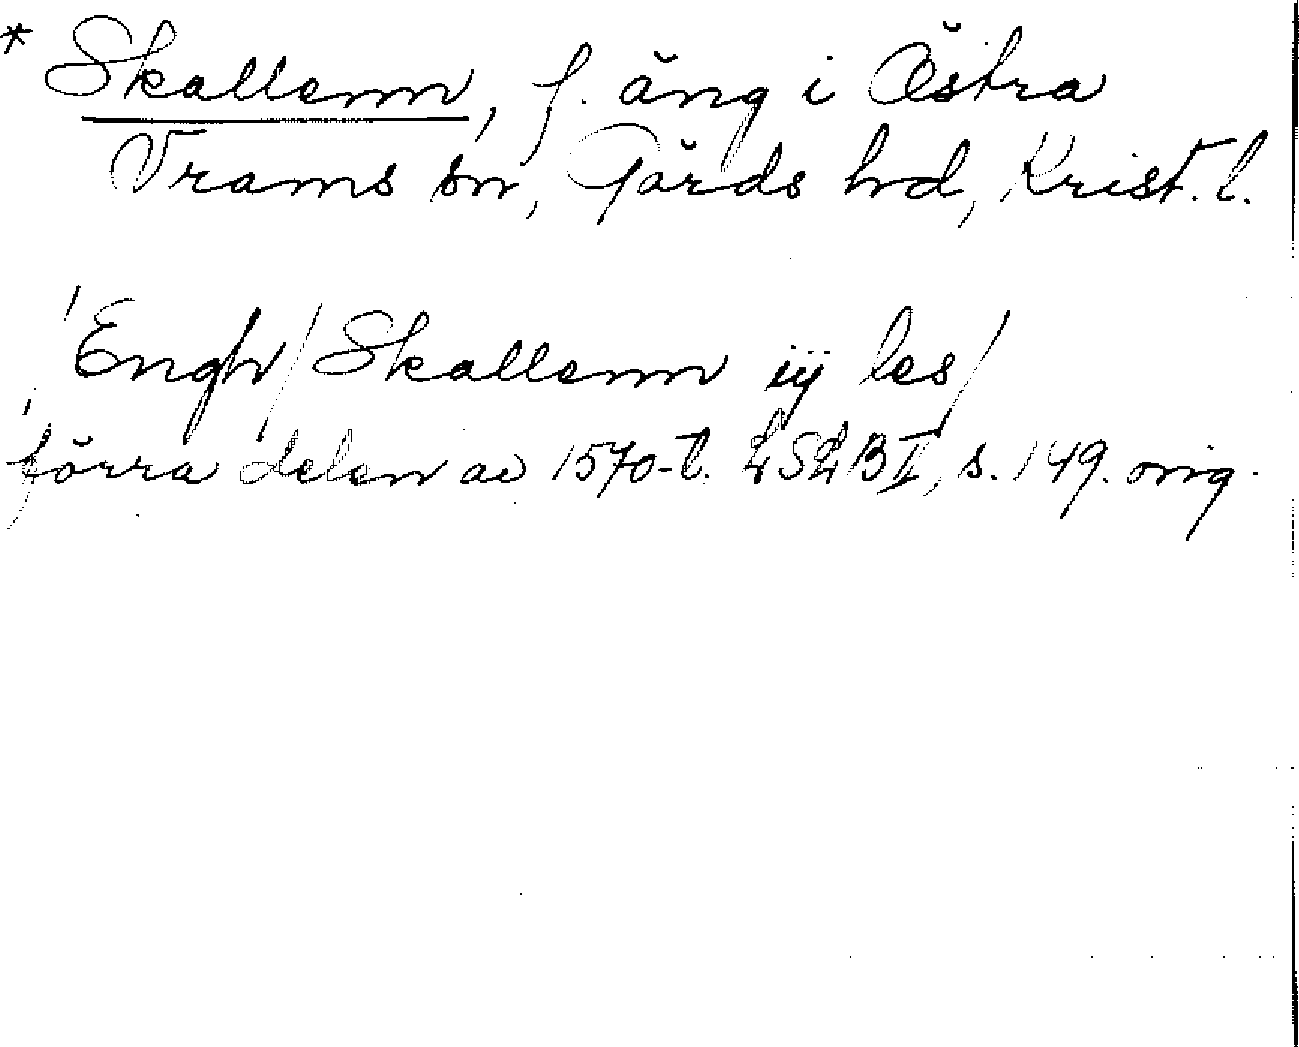 * Skallenn, f. äng i Östra
Vrams sn, Gärds hd, Krist. l.
Engh / Skallenn iij les /
förra delen av 1570-t. LSLB II, s. 149. orig.